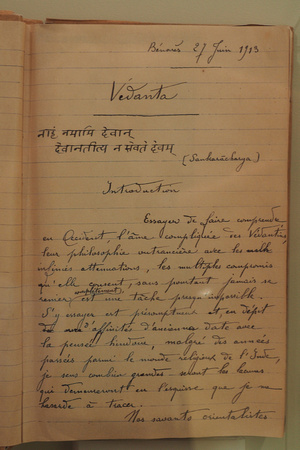 Bénarès 27 Juin 1913
Védanta
नाहं नमामि देवान्
देवानतीत्य न सेवते देवम्
(Sankaracharya)
Introduction
Essayer de faire comprendre
en Occident, l'âme compliquée des Védantins,
leur philosophie outrancière avec les
infinies atténuations, les multiples compromis
qu'elle consent, sans pourtant jamais se
renier est une tâche presque impossible.
S'y essayer est présomptueux et, en dépit
d'affinités d'ancienne date avec
la pensée hindoue, malgré des années
passées parmi le monde religieux de l'Inde,
je sens combien grandes seront les lacunes
qui demeureront en l'esquisse que je me
hasarde à tracer.
Nos savants orientalistes